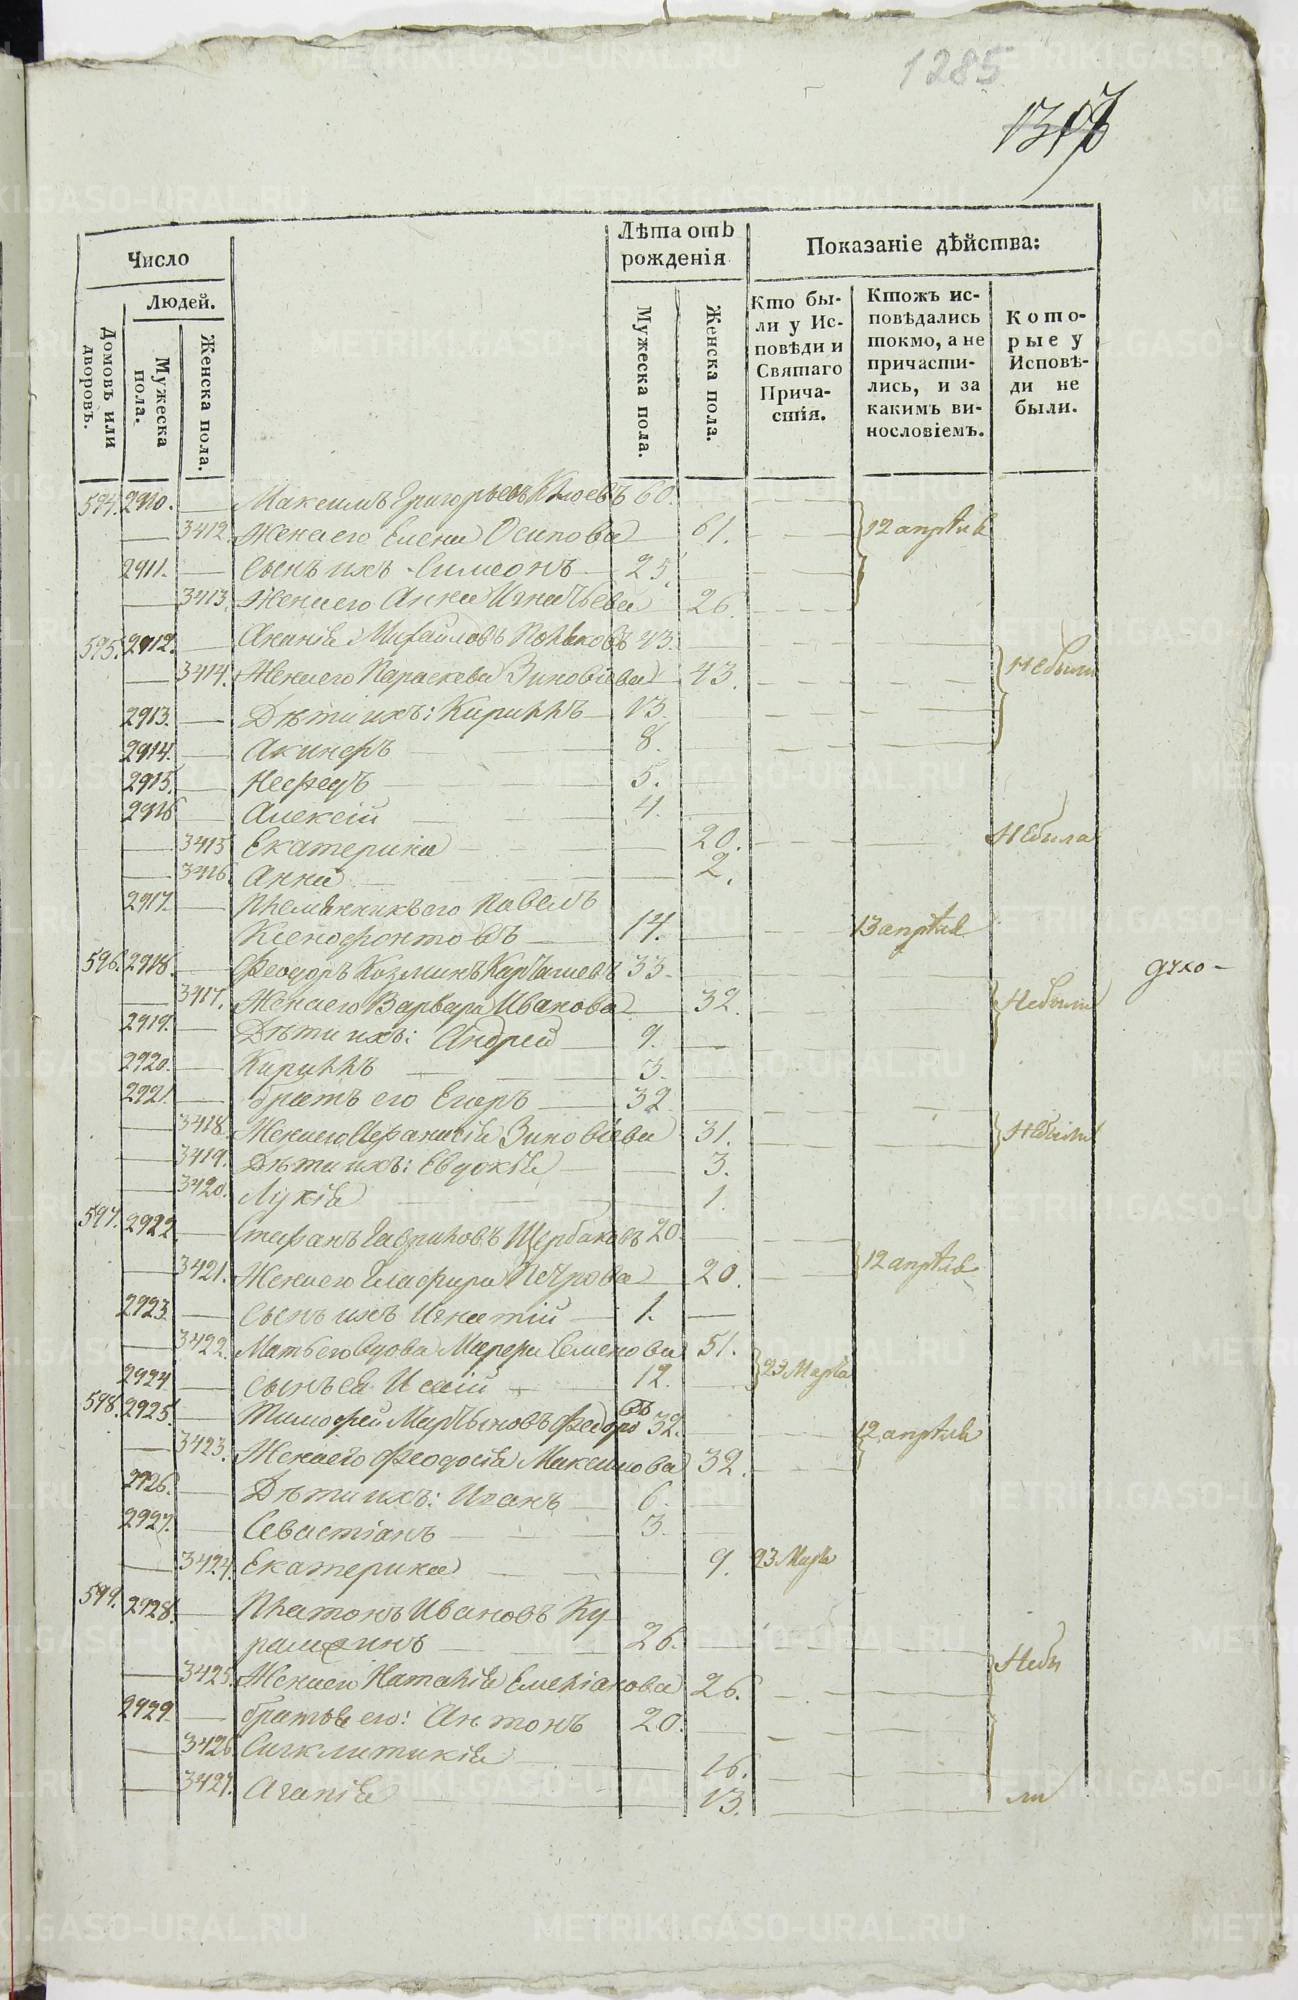 1285
Число
Людей.
Домовъ или дворовъ.
Мужеска пола.
Женска пола.
Лѣта отъ рожденія
Мужеска пола.
Женска пола.
Показаніе дѣйства:
Кто бы-
ли у Ис-
повѣди и
Святаго
Прича-
стія.
Ктожъ ис-
повѣдались
токмо, а не
причасти-
лись, и за
какимъ ви-
нословіемъ.
Кото-
рые у
Исповѣ-
ди не
были.
594. 2910. Максимъ Григорьевъ 60.
3412. Жена его Елена Осипова 61. 12 апрѣля
2911. Сынъ ихъ Симеонъ 25.
3413. Жена его Анна Игнатьева 26
595. 2912. Ананія Михайловъ Поляковъ 43.
3414. Жена его Параскева Зиновіева 43. Небыли
2913. Дѣти их: Кириллъ 13.
2914. Акинфъ 8.
2915. Нефедъ 5.
2916 Алексій 4.
3415 Екатерина 20. Небыла
3416. Анна 2.
2917. Племянникъ его Павелъ
Ксенофонтовъ 14. 13 апрѣля
596. 2918. Феодоръ Козминъ 33.
духо-
3417. Жена его Варвара Иванова 32. Небыли
2919. Дѣти ихъ: Андрей 9.
2920. Кириллъ 3.
2921. братъ его Егоръ 32
3418. Жена его Зиновіева 31. Небыли
3419. Дѣти ихъ: Евдокія 3.
3420. Лукія 1.
597. 2922 Стефанъ Гавриловъ Щербаковъ 20.
3421. Жена его Глафира Петрова 20. 12 апрѣля
2923. Сынъ ихъ Игнатій 1.
3422. Мать его вдова Марфа Семенова 51. 23 Марта
2924 Сынъ ея Исаій 12.
598. 2925. Тимофей Мартыновъ Федоровъ 32.
12 апрѣля
3423. Жена его Феодосія Максимова 32.
2926. Дѣти ихъ: Иванъ 6.
2927. Севастіанъ 3.
3424. Екатерина 9. 23 Марта
599. 2928. Платонъ Ивановъ Ку-
26. Небы
3425. Жена его Наталія Емеліанова 26.
2929 братья его: Антонъ 20.
3426 Сигклитикія 16.
3427. Агапія 13. ли
METRIKI.GASO-URAL.RU